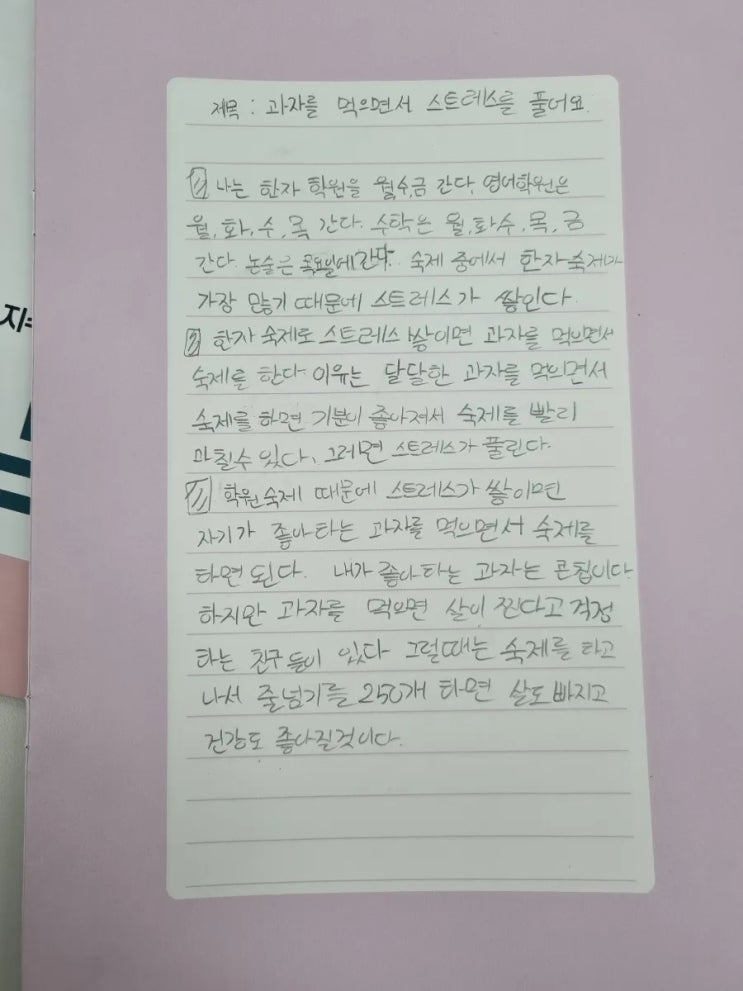 제목 : 과자를 먹으면서 스트레스를 풀어요.
나는 한자 학원을 월,수,금 간다. 영어학원은
월, 화, 수, 목 간다. 수탁은 월, 화 수, 목, 금
간다. 논술은 목요일에 간다. 숙제 중에서 한자숙제가
가장 많기 때문에 스트레스가 쌓인다.
한자 숙제로 스트레스 쌓이면 과자를 먹으면서
숙제를 한다 이유는 달달한 과자를 먹으면서
숙제를 하면 기분이 좋아져서 숙제를 빨리
마칠수 있다. 그러면 스트레스가 풀린다.
학원숙제 때문에 스트레스가 쌓이면
자기가 좋아하는 과자를 먹으면서 숙제를
하면 된다. 내가 좋아하는 과자는 콘칩이다.
하지만 과자를 먹으면 살이 찐다고 걱정
하는 친구들이 있다 그럴때는 숙제를 하고
나서 줄넘기를 250개 하면 살도 빠지고
건강도 좋아질것이다.
지